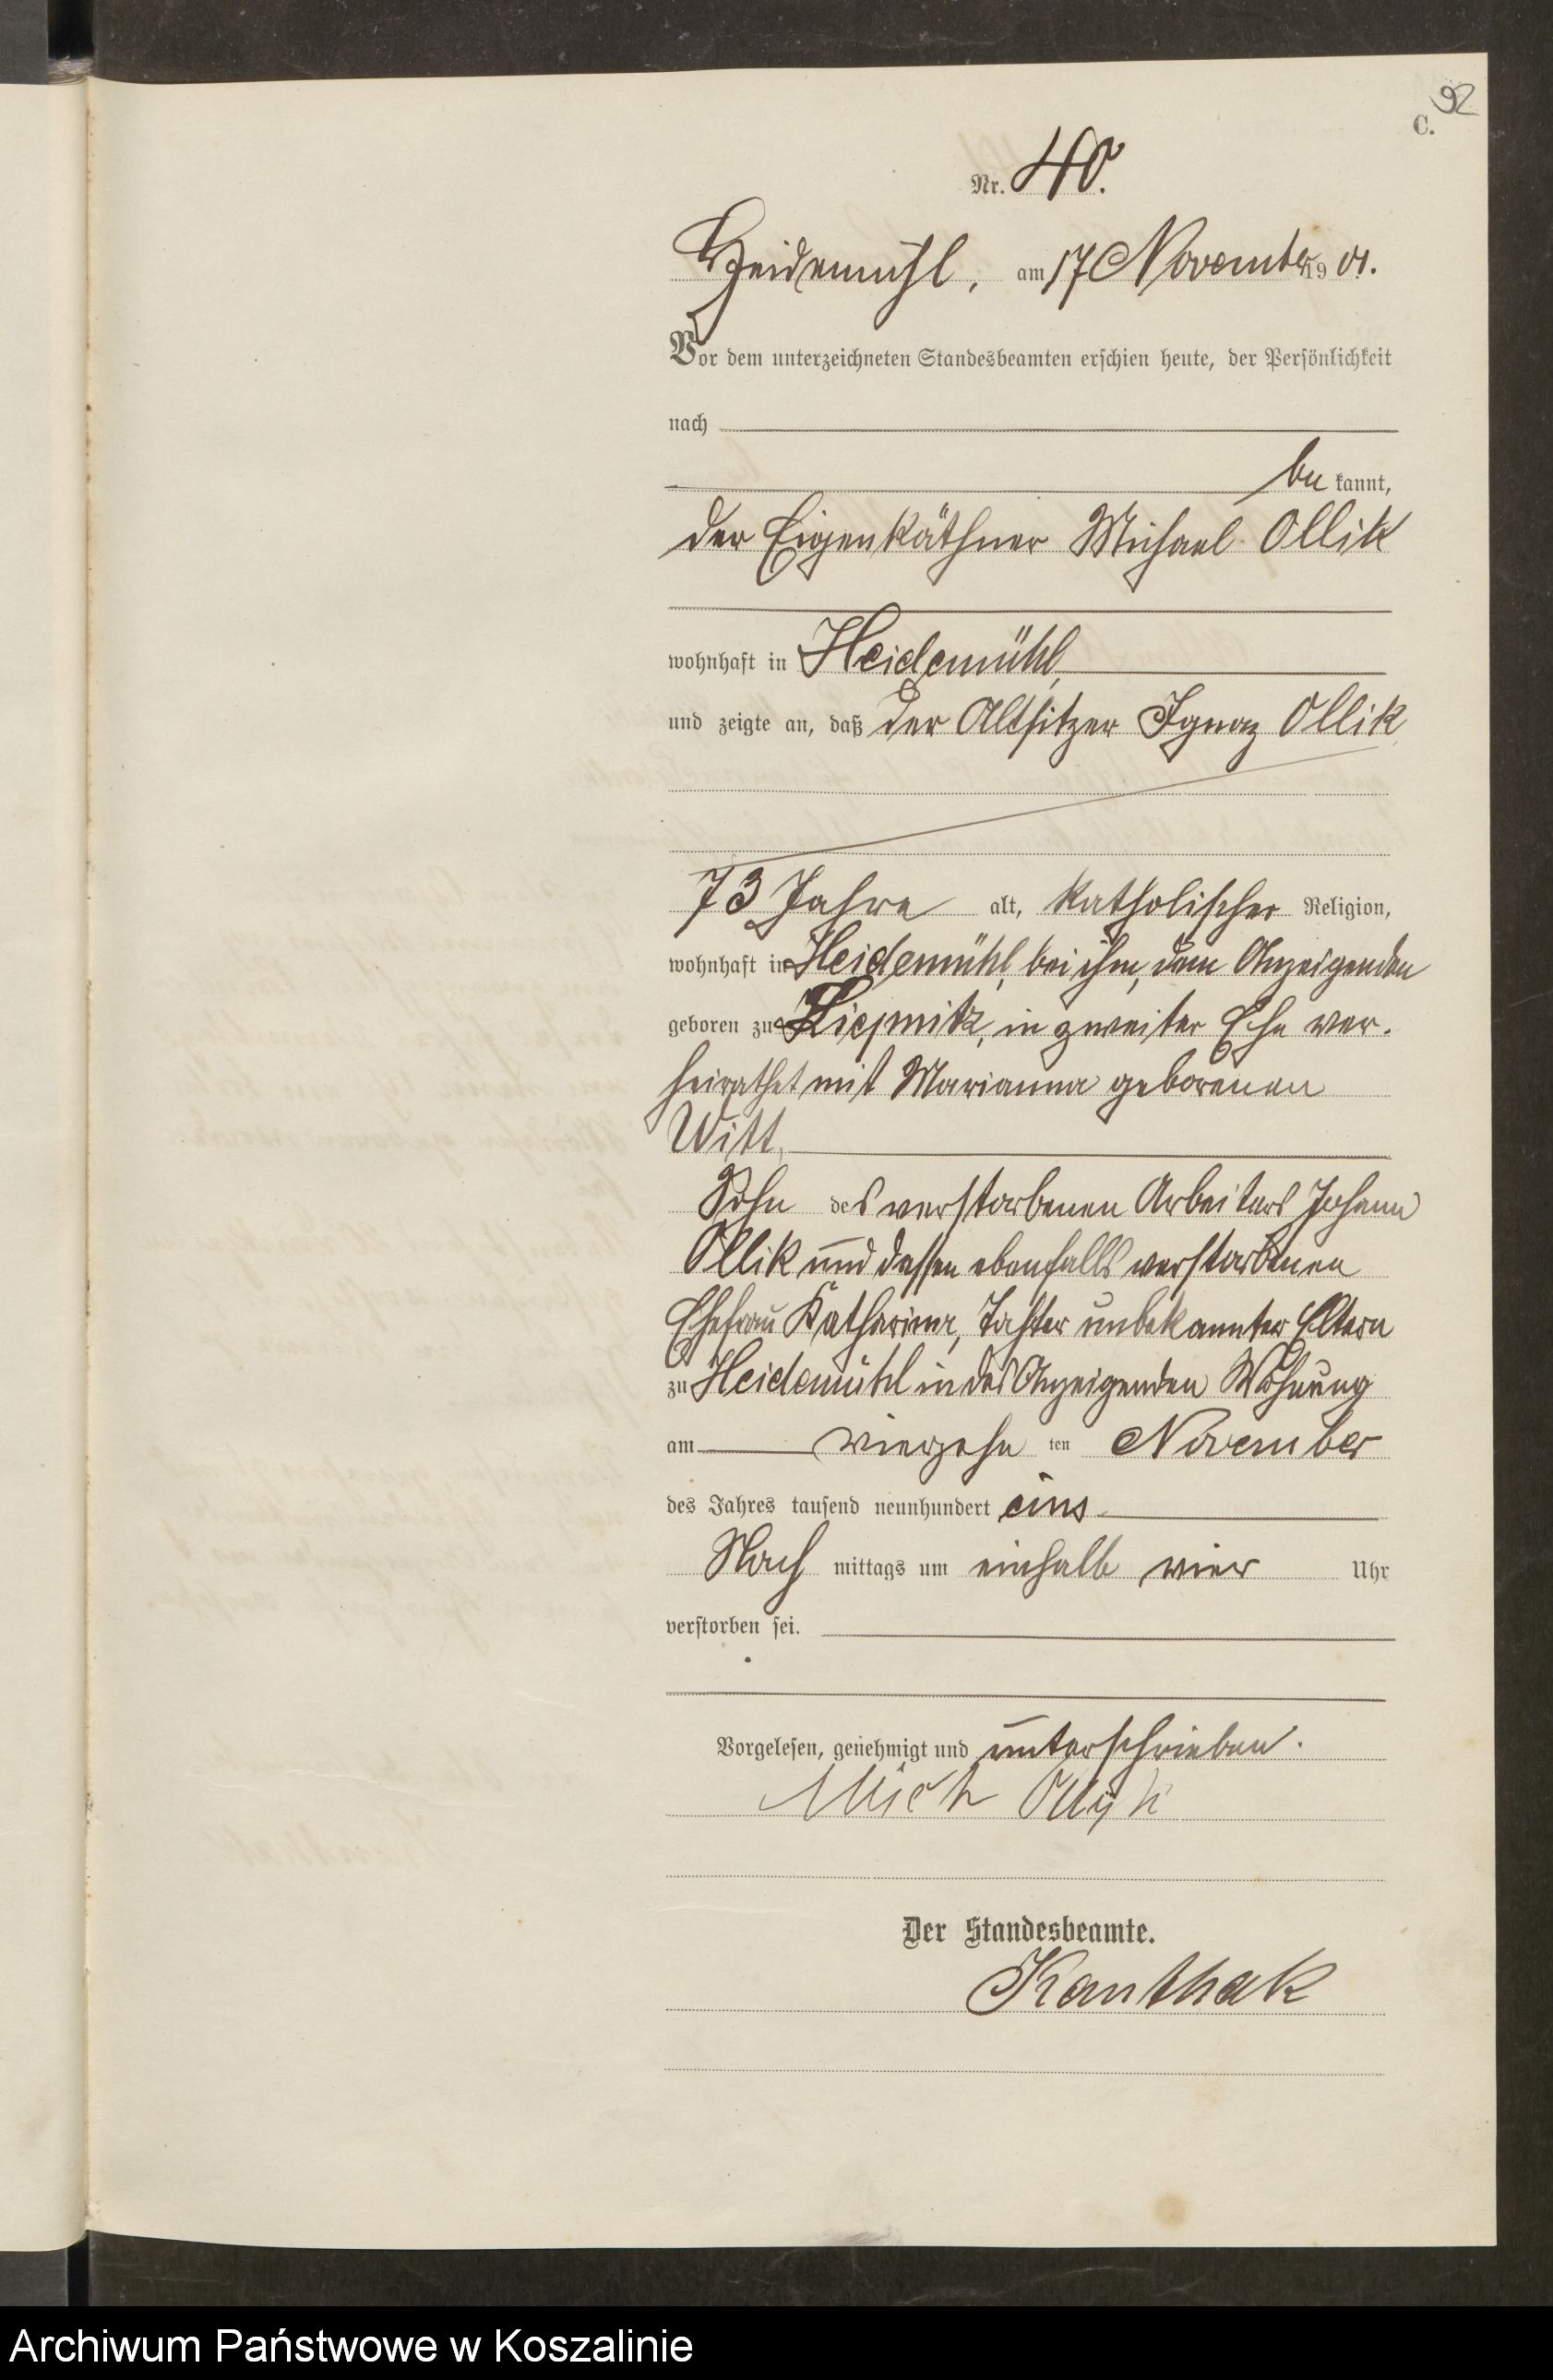 92
C.
Nr. 40.
Heidemühl, am 17 November 1901.
Vor dem unterzeichneten Standesbeamten erschien heute, der Persönlichkeit
nach
be kannt,
der Eigenkäthner Michael Ollik
wohnhaft in Heidemühl,
und zeigte an, daß der Altsitzer Ignaz Ollik
73 Jahre alt, katholischer Religion,
wohnhaft in Heidemühl, bei ihm, dem Anzeigenden
geboren zu Liepnitz, in zweiter Ehe ver-
heirathet mit Marianna geborenen
Witt,
Sohn des verstorbenen Arbeiters Johann
Ollik und dessen ebenfalls verstorbenen
Ehefrau Katharina, Tochter unbekannter Eltern
zu Heidemühl in des Anzeigenden Wohnung
am vierzehn ten November
des Jahres tausend neunhundert eins
Nach mittags um einhalb vier Uhr
verstorben sei.
Vorgelesen, genehmigt und unterschrieben.
Mich Ollyk
Der Standesbeamte.
Kanthak
Archiwum Państwowe w Koszalinie